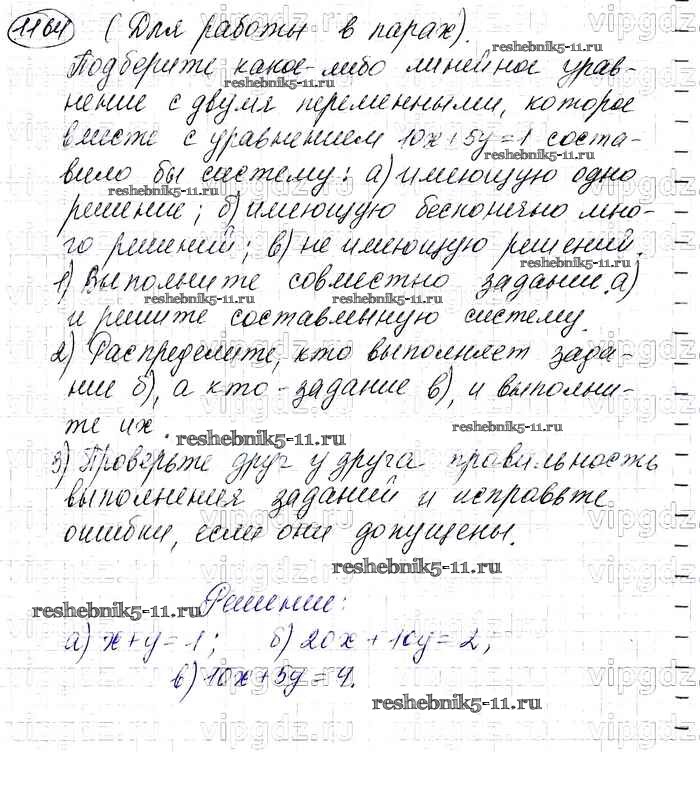 1164 (Для работы в парах).
Подберите какое-либо линейное урав-
нение с двумя переменными, которое
вместе с уравнением 10x+5y=1 соста-
вило бы систему: а) имеющую одно
решение; б) имеющую бесконечно мно-
го решений; в) не имеющую решений.
1) Выполните совместно задание а)
и решите составленную систему.
2) Распределите, кто выполняет зада-
ние б), а кто - задание в), и выполни-
те их.
3) Проверьте друг у друга правильность
выполнения заданий и исправьте
ошибки, если они допущены.
Решение:
а) x+y=1; б) 20x+10y=2;
в) 10x+5y=4.
reshebnik5-11.ru
vipgdz.ru